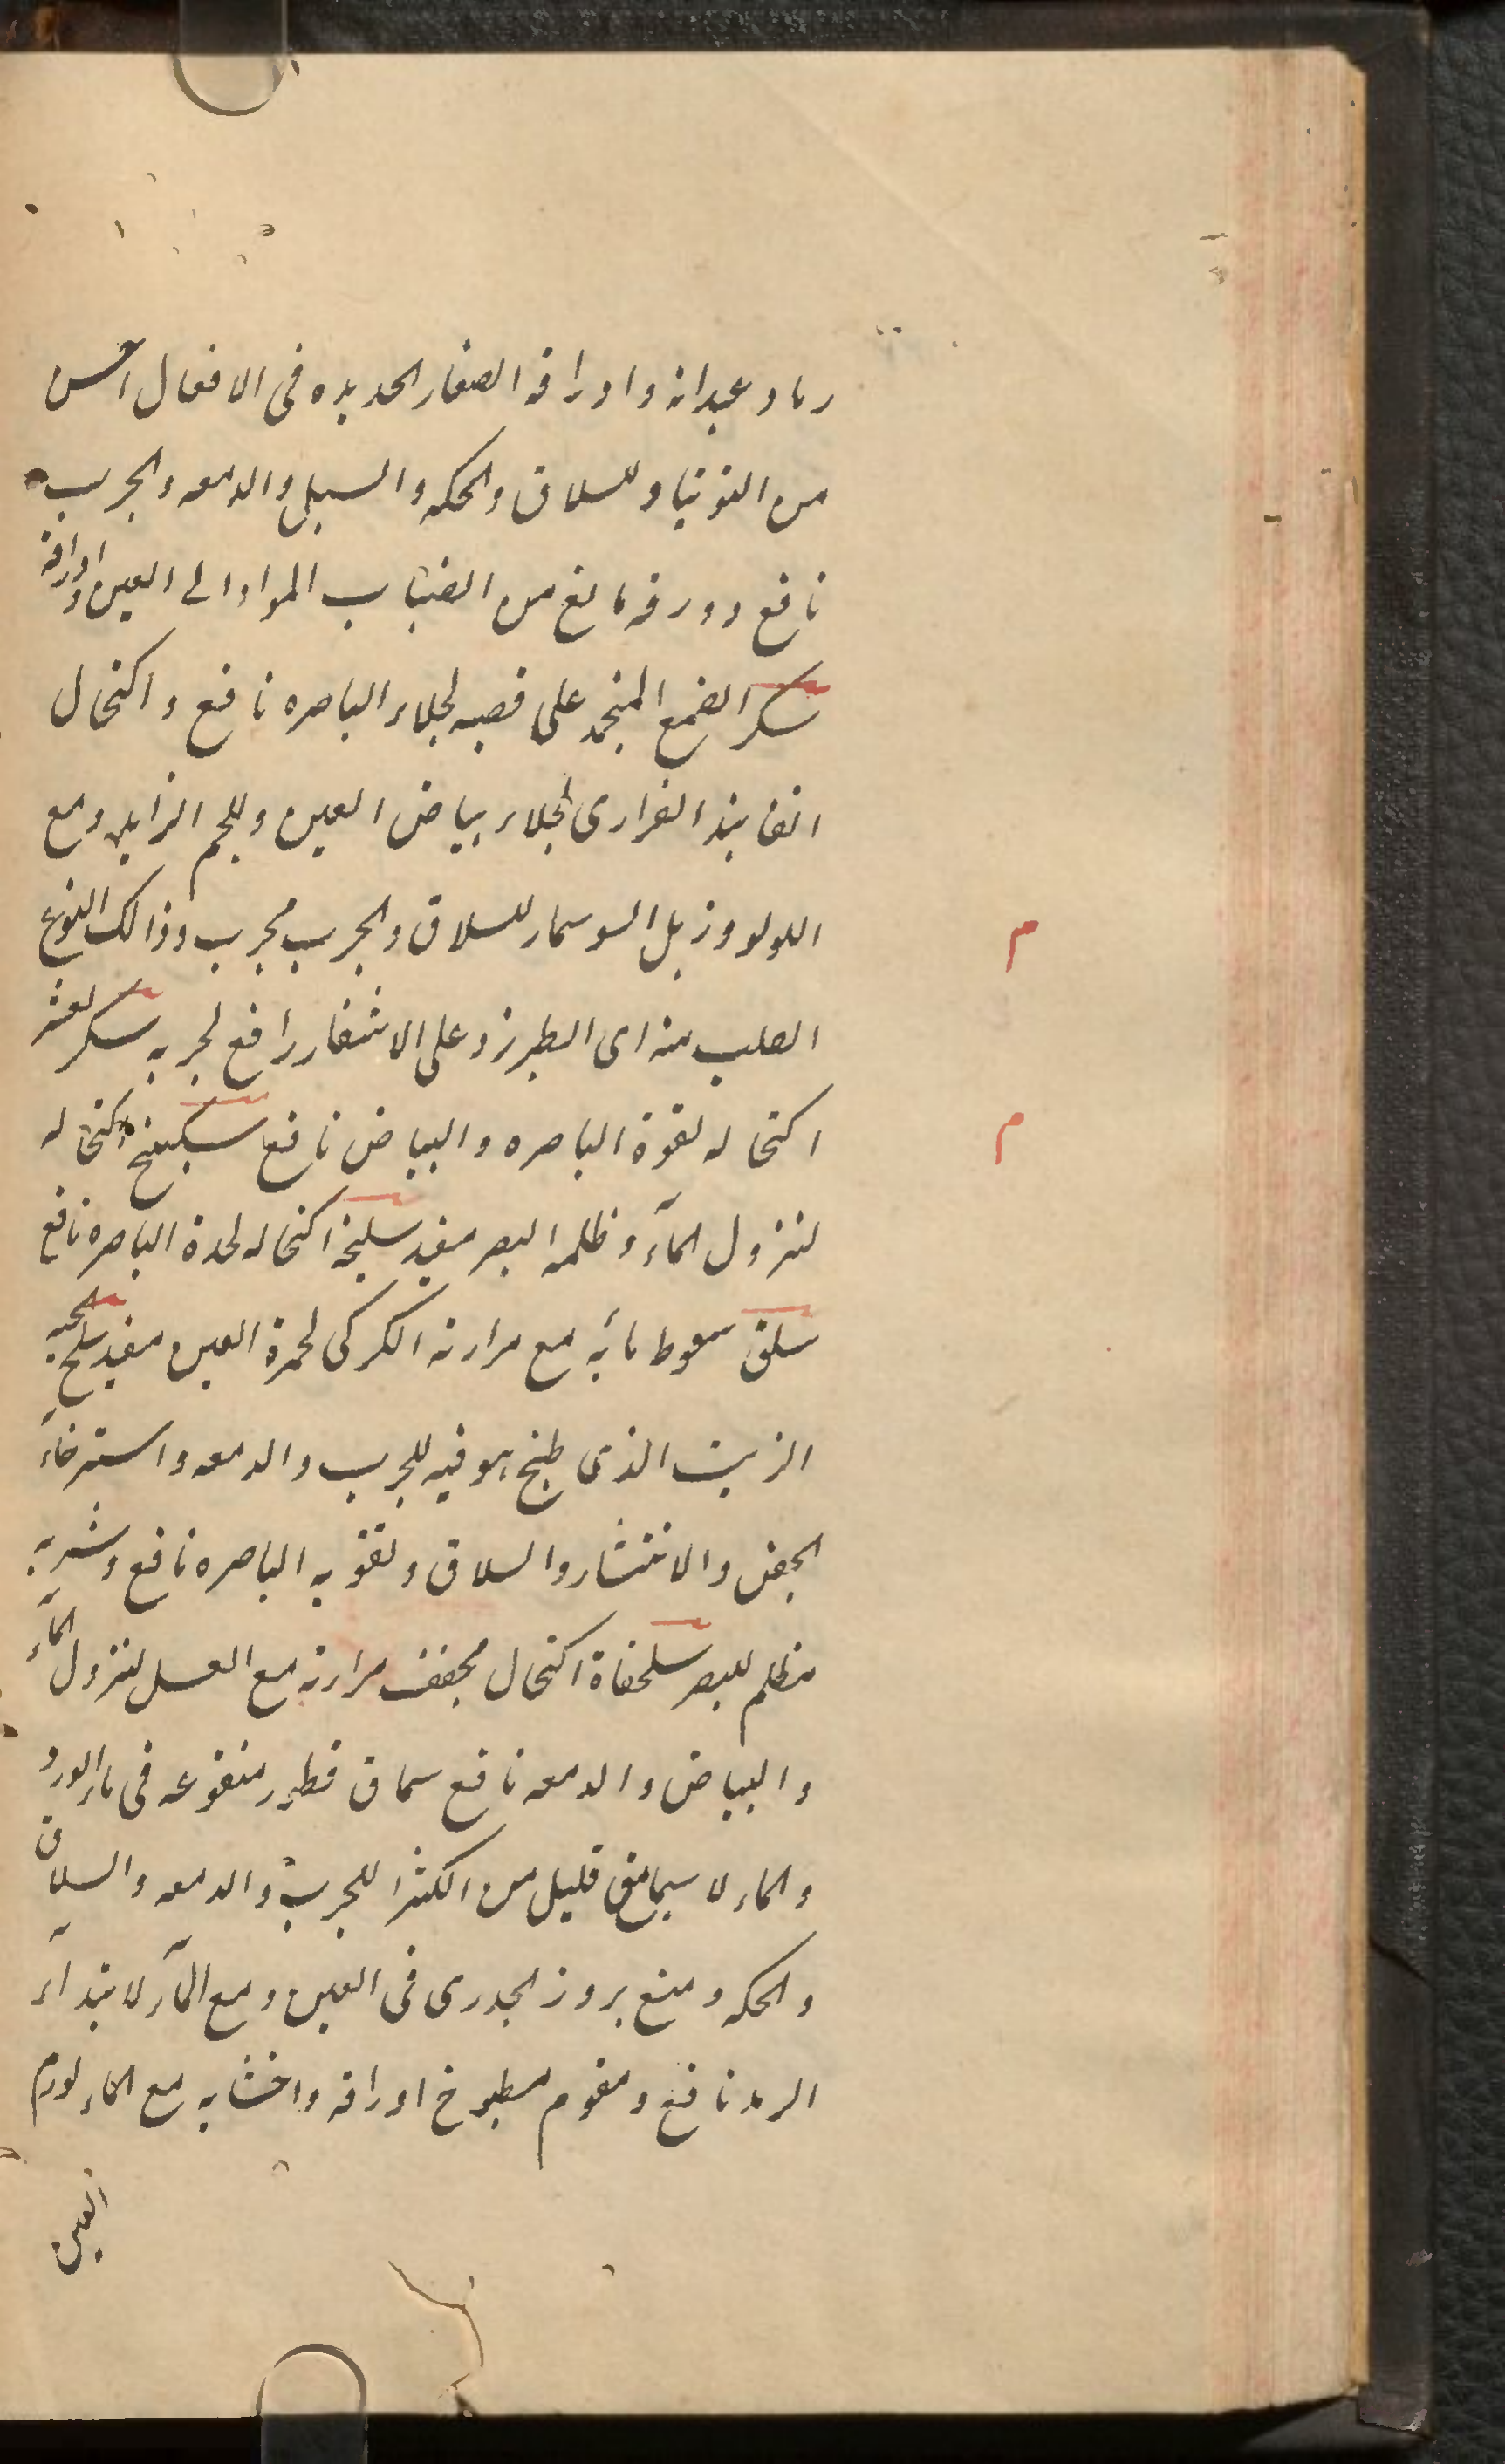 رماد عیدانه واوراقه الصغار الحدیده فی الافعال احسن
من التوتیا وللسلاق والحکه والسبل والدمعه والجرب
نافع وورقه مانع من انصباب المواد الی العین واوراقه
سکر الصمغ المنجمد علی قصبه لجلاء الباصره نافع واکتحال
الفانیذ الغراری لجلاء بیاض العین وللحم الزاید ومع
اللولو وزبل السوسمار للسلاق والجرب مجرب وذالک النوع
م
الصلب منه ای الطبرزد علی الاشفار رافع لجربه سکر العشر
اکتحاله لقوة الباصره والبیاض نافع سکبینج اکتحاله
م
لنزول المآء وظلمه البصر مفید سلیخه اکتحاله لحدة الباصره نافع
سلق سعوط مائه مع مرارة الکرکی لحمرة العین مفید سلخ الحیه
الزیت الذی طبخ هو فیه للجرب والدمعه واسترخاء
الجفن والانتشار والسلاق ولتقویه الباصره نافع وشربه
مظلم للبصر سلحفاة اکتحال مجفف مرارته مع العسل لنزول المآء
والبیاض والدمعه نافع سماق قطور منقوعه فی ماء الورد
والماء لا سیما مع قلیل من الکثیرا للجرب والدمعه والسلاق
والحکه ومنع بروز الجدری فی العین ومع المآء لابتدآء
الرمد نافع ومقوم مطبوخ اوراقه واخشابه مع الماء لورم
العین